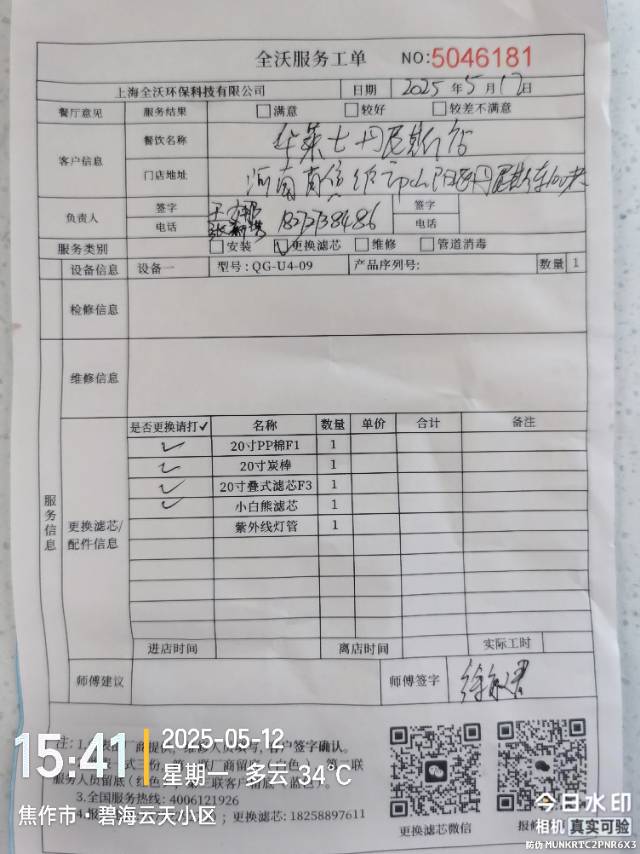 全沃服务工单 NO:5046181
上海全沃环保科技有限公司 日期 2025年5月12日
餐厅意见 服务结果 □满意 □较好 □较差不满意
客户信息 餐饮名称 华莱士丹尼斯店
门店地址 河南省焦作市山阳区丹尼斯东100米
负责人 签字 签字
电话 1873738486 电话
服务类别 □安装 ☑更换滤芯 □维修 □管道消毒
设备信息 设备一 型号:QG-U4-09 产品序列号: 数量 1
检修信息
维修信息
服务信息
更换滤芯/配件信息
是否更换请打✓ 名称 数量 单价 合计 备注
✓ 20寸PP棉F1 1
✓ 20寸炭棒 1
✓ 20寸叠式滤芯F3 1
✓ 小白熊滤芯 1
紫外线灯管 1
进店时间 离店时间 实际工时
师傅建议 师傅签字
注:1. 厂商提供,维修人员填写,客户签字确认。
3.全国服务热线:4006121926
更换滤芯:18258897611
更换滤芯微信 报修
15:41
2025-05-12
星期一 多云 34℃
焦作市·碧海云天小区
今日水印
相机 真实可验
防伪 MUNKRTC2PNR6X3